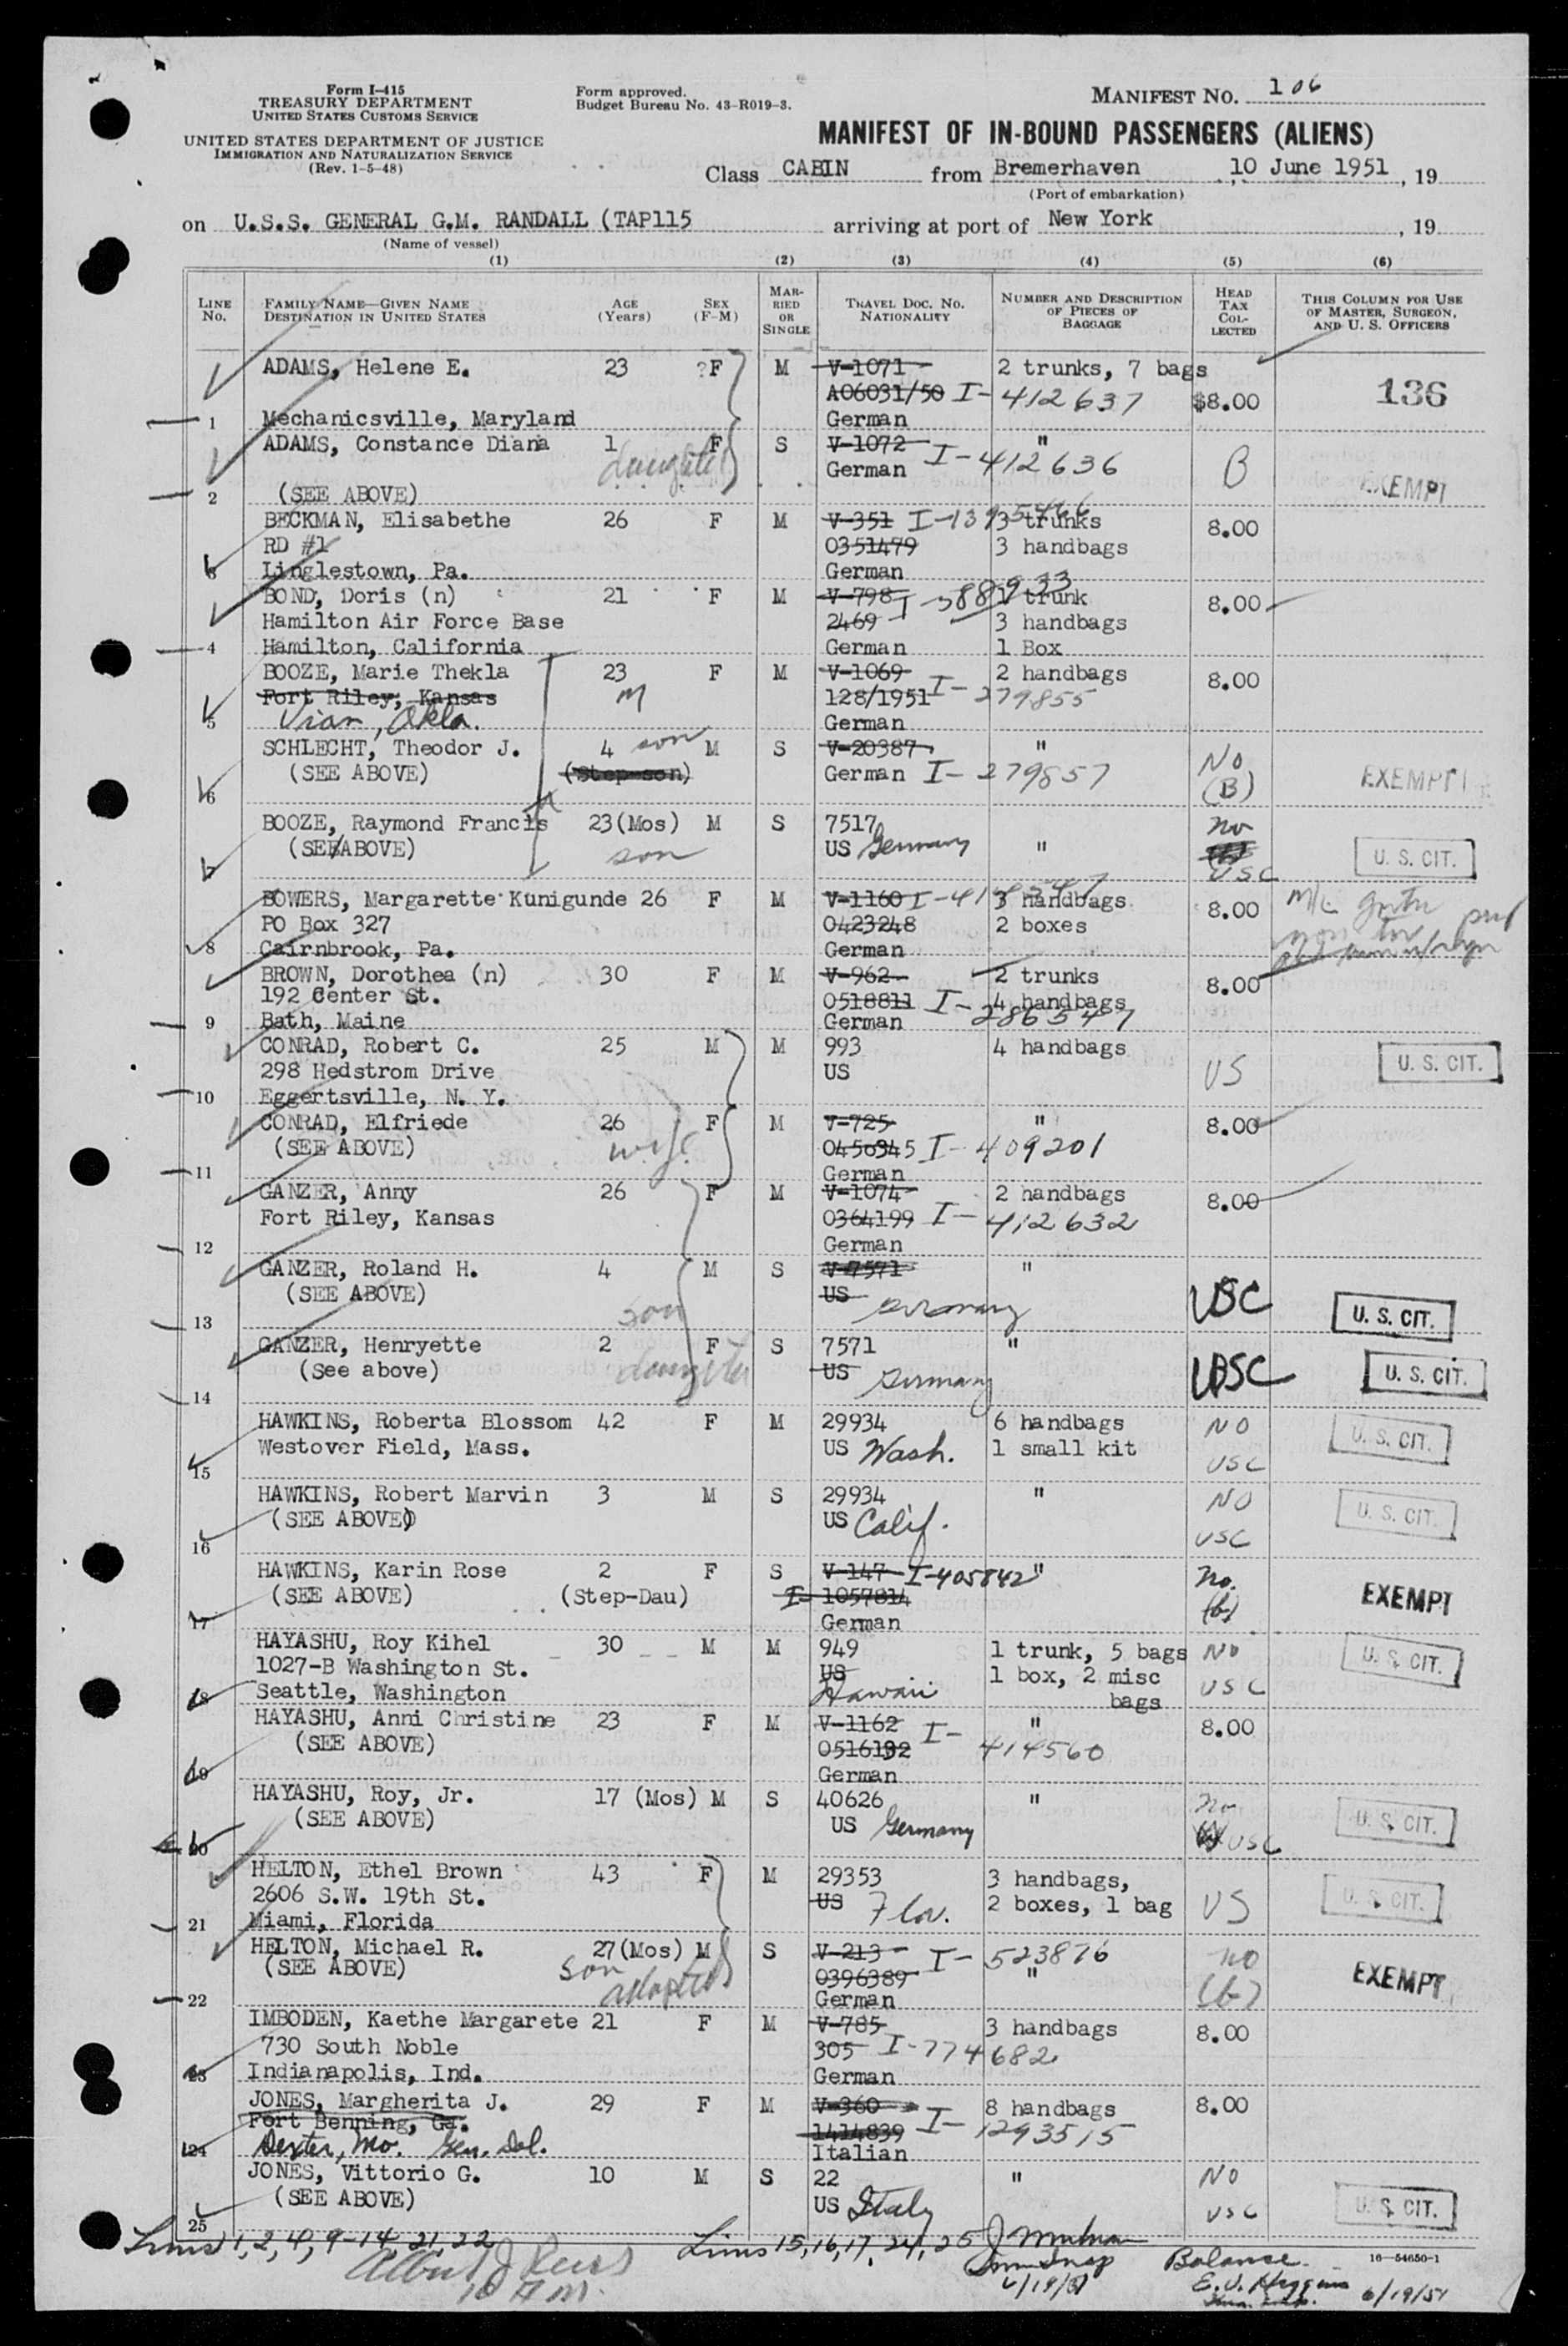 Form I-415
TREASURY DEPARTMENT
UNITED STATES CUSTOMS SERVICE
UNITED STATES DEPARTMENT OF JUSTICE
IMMIGRATION AND NATURALIZATION SERVICE
(Rev. 1-5-48)
Form approved.
Budget Bureau No. 43-R019-3.
MANIFEST NO. 106
MANIFEST OF IN-BOUND PASSENGERS (ALIENS)
Class CABIN from Bremerhaven, 10 June 1951, 19
(Port of embarkation)
on U.S.S. GENERAL G.M. RANDALL (TAP115 arriving at port of New York, 19
(Name of vessel)
(1) (2) (3) (4) (5) (6)
LINE No. FAMILY NAME—GIVEN NAME DESTINATION IN UNITED STATES AGE (Years) SEX (F-M) MARRIED OR SINGLE TRAVEL DOC. NO. NATIONALITY NUMBER AND DESCRIPTION OF PIECES OF BAGGAGE HEAD TAX COLLECTED THIS COLUMN FOR USE OF MASTER, SURGEON, AND U. S. OFFICERS
ADAMS, Helene E. 23 ?F M V-1071 2 trunks, 7 bags
A06031/50 I-412637 $8.00 136
1 Mechanicsville, Maryland German
ADAMS, Constance Diana 1 F S V-1072 "
daughter German I-412636 B
2 (SEE ABOVE) EXEMPT
BECKMAN, Elisabethe 26 F M V-351 3 trunks 8.00
RD #1 0351479 3 handbags
3 Linglestown, Pa. German
BOND, Doris (n) 21 F M V-798 1 trunk 8.00
Hamilton Air Force Base 2469 3 handbags
4 Hamilton, California German 1 Box
BOOZE, Marie Thekla 23 F M V-1069 2 handbags 8.00
Fort Riley, Kansas M 128/1951 I-279855
5 Vian, Okla. German
SCHLECHT, Theodor J. 4 son M S V-20387 " No
(SEE ABOVE) (Step-son) German I-279857 (B) EXEMPT
6
BOOZE, Raymond Francis 23(Mos) M S 7517 no
(SEE ABOVE) son US Germany " USC U. S. CIT.
7
BOWERS, Margarette Kunigunde 26 F M V-1160 3 handbags 8.00
PO Box 327 0423248 2 boxes
8 Cairnbrook, Pa. German
BROWN, Dorothea (n) 30 F M V-962 2 trunks 8.00
192 Center St. 0518811 I-286547 4 handbags
9 Bath, Maine German
CONRAD, Robert C. 25 M M 993 4 handbags
298 Hedstrom Drive US US U. S. CIT.
10 Eggertsville, N. Y.
CONRAD, Elfriede 26 F M V-725 " 8.00
(SEE ABOVE) wife 0456345 I-409201
11 German
GANZER, Anny 26 F M V-1074 2 handbags 8.00
Fort Riley, Kansas 0364199 I-412632
12 German
GANZER, Roland H. 4 M S V-7571 "
(SEE ABOVE) son US Germany USC U. S. CIT.
13
GANZER, Henryette 2 F S 7571 "
(See above) daughter US Germany USC U. S. CIT.
14
HAWKINS, Roberta Blossom 42 F M 29934 6 handbags NO
Westover Field, Mass. US Wash. 1 small kit USC U. S. CIT.
15
HAWKINS, Robert Marvin 3 M S 29934 " NO
(SEE ABOVE) US Calif. USC U. S. CIT.
16
HAWKINS, Karin Rose 2 F S V-147 I-405842 " No.
(SEE ABOVE) (Step-Dau) I-1057814 (b) EXEMPT
17 German
HAYASHU, Roy Kihel 30 M M 949 1 trunk, 5 bags NO
1027-B Washington St. US 1 box, 2 misc USC U. S. CIT.
18 Seattle, Washington Hawaii bags
HAYASHU, Anni Christine 23 F M V-1162 " 8.00
(SEE ABOVE) 0516132 I-414560
19 German
HAYASHU, Roy, Jr. 17 (Mos) M S 40626 " no
(SEE ABOVE) US Germany USC U. S. CIT.
20
HELTON, Ethel Brown 43 F M 29353 3 handbags,
2606 S.W. 19th St. US Flor. 2 boxes, 1 bag US U. S. CIT.
21 Miami, Florida
HELTON, Michael R. 27(Mos) M S V-213 I-523876 no
(SEE ABOVE) son adopted 0396389 " (b) EXEMPT
22 German
IMBODEN, Kaethe Margarete 21 F M V-785 3 handbags 8.00
730 South Noble 305 I-774682
23 Indianapolis, Ind. German
JONES, Margherita J. 29 F M V-360 8 handbags 8.00
Fort Benning, Ga. 1414839 I-1293515
24 Dexter, Mo. Gen. Del. Italian
JONES, Vittorio G. 10 M S 22 " NO
(SEE ABOVE) US Italy USC U. S. CIT.
25
Lines 1, 2, 4, 9-14 21, 22 Lines 15, 16, 17, 24, 25
6/19/51 Balance
E. J. Higgins 6/19/51
16—54650-1